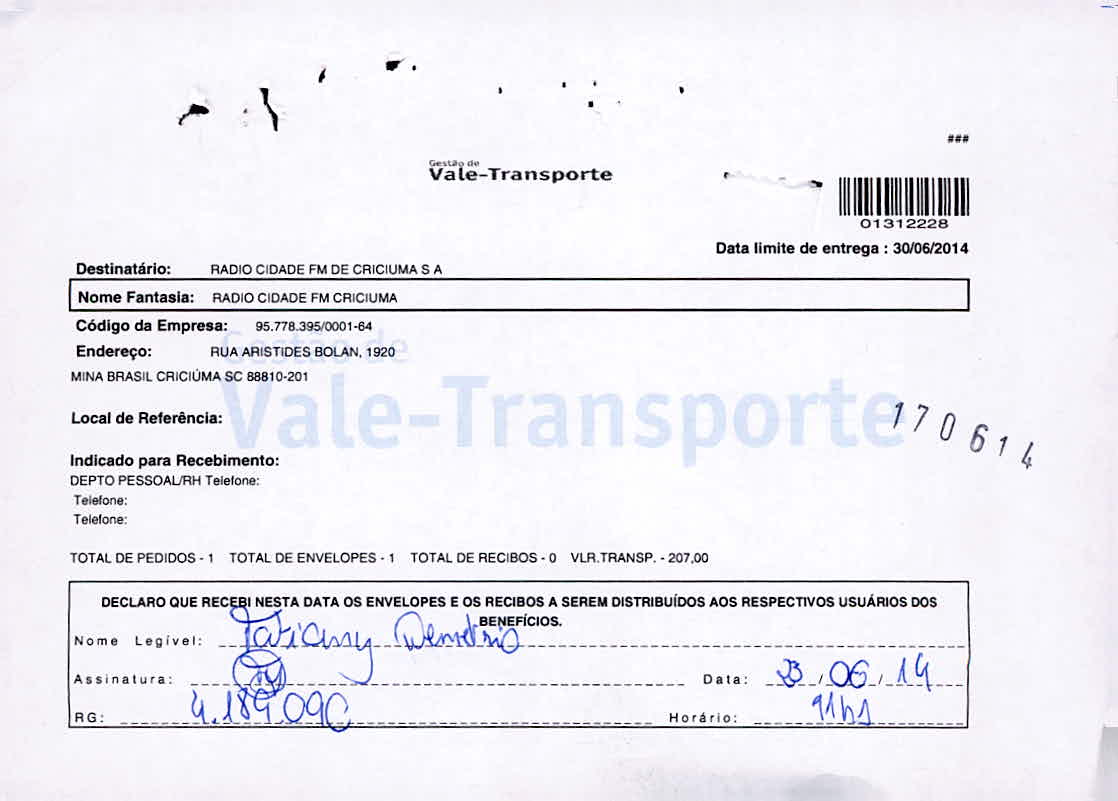 ###
Gestão de
Vale-Transporte
01312228
Data limite de entrega : 30/06/2014
Destinatário: RADIO CIDADE FM DE CRICIUMA S A
Nome Fantasia: RADIO CIDADE FM CRICIUMA
Código da Empresa: 95.778.395/0001-64
Gestão de
Endereço: RUA ARISTIDES BOLAN, 1920
MINA BRASIL CRICIÚMA SC 88810-201
Vale-Transporte
170614
Local de Referência:
Indicado para Recebimento:
DEPTO PESSOAL/RH Telefone:
Telefone:
Telefone:
TOTAL DE PEDIDOS - 1 TOTAL DE ENVELOPES - 1 TOTAL DE RECIBOS - 0 VLR.TRANSP. - 207,00
DECLARO QUE RECEBI NESTA DATA OS ENVELOPES E OS RECIBOS A SEREM DISTRIBUÍDOS AOS RESPECTIVOS USUÁRIOS DOS
BENEFÍCIOS.
Nome Legível: Tatiany Demetrio
Assinatura: Data: 23/06/14
RG: 4.189.090 Horário: 11hs